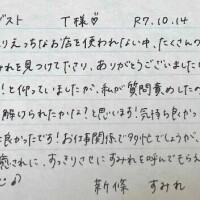 ゲスト T様♡ R7.10.14
りえっちなお店を使われない中、たくさんの
みれを見つけて下さり、ありがとうございました
!と仰っていましたが、私が質問責めしたの
解けられたかな?と思います!気持ち良かっ
に良かったです!お仕事関係で多忙でしょうが、
癒されに、すっきりさせにすみれを呼んでもらえ
新條 すみれ